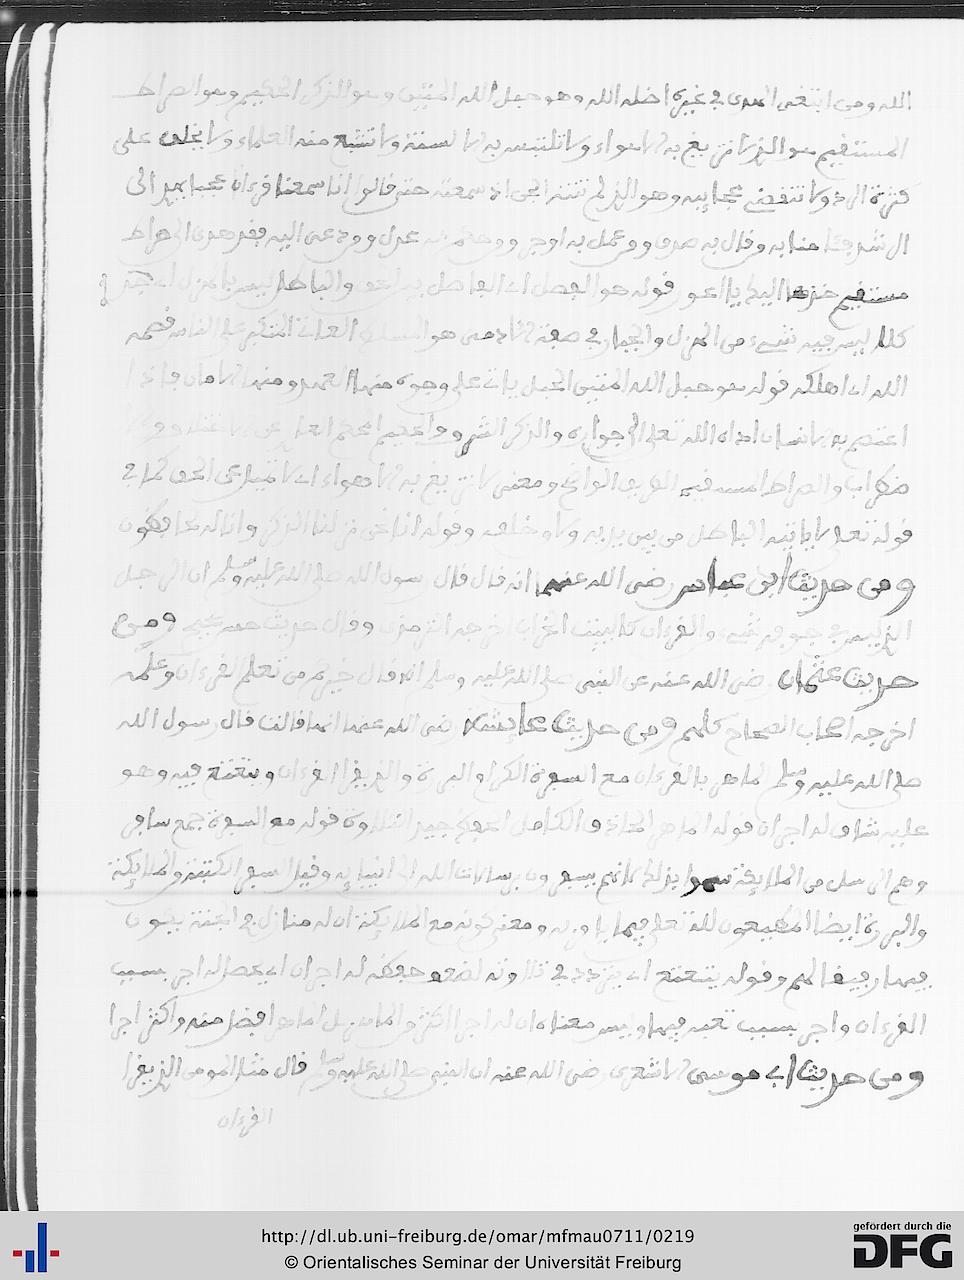 الله ومن ابتغى الهدى في غيره اضله الله وهو حبل الله المتين وهو الذكر الحكيم وهو الصراط
المستقيم هو الذي لا تزيغ به الاهواء ولا تلتبس به الالسنة ولا تشبع منه العلماء ولا يخلق على
كثرة الرد ولا تنقضي عجايبه وهو الذي لم تنته الجن اذ سمعته حتى قالوا انا سمعنا قرءانا عجبا يهدي الى
الرشد فئامنا به من قال به صدق ومن عمل به اوجر ومن حكم به عدل ومن دعى اليه فقد هدي الى صراط
مستقيم خذها اليك يا اعور قوله هو الفصل اي الفاصل بين الحق والباطل ليس بالهزل اي جد
كله ليس فيه شيء من الهزل والجبار في صفة الادمي هو المسلط العاتي المتكبر على الناس قصمه
الله اي اهلكه قوله هو حبل الله المتين الحبل ياتي على وجوه منها العهد ومنها الامان فاذا
اعتصم به الانسان اداه الله تعلى الى جواره والذكر الشرف والحكيم المحكم العاري عن الاختلاف و
ضطراب والصراط المستقيم الطريق الواضح ومعنى لا تزيغ به الاهواء اي لا تميل عن الحق كما في
قوله تعلى لا ياتيه الباطل من بين يديه ولا من خلفه وقوله انا نحن نزلنا الذكر وانا له لحافظون
ومن حديث ابن عباس رضي الله عنهما انه قال قال رسول الله صلى الله عليه وسلم ان الرجل
الذي ليس في جوفه شيء من القرءان كالبيت الخراب اخرجه الترمذي وقال حديث حسن صحيح ومن
حديث عثمان رضي الله عنه عن النبي صلى الله عليه وسلم انه قال خيركم من تعلم القرءان وعلمه
اخرجه اصحاب الصحاح كلهم ومن حديث عايشة رضي الله عنها انها قالت قال رسول الله
صلى الله عليه وسلم الماهر بالقرءان مع السفرة الكرام البررة والذي يقرا القرءان ويتعتع فيه وهو
عليه شاق له اجران قوله الماهر الحاذق الكامل الحفظ جيد التلاوة قوله مع السفرة جمع سافر
وهم الرسل من الملايكة سموا بذلك لانهم يسفرون برسالات الله الى انبيايه وقيل السفر الكتبة والملايكة
والبررة ايضا المطيعون لله تعلى فيما يامر به ومعنى كونه مع الملايكة ان له منازل في الجنة يكون
فيها رفيقا لهم وقوله يتعتع اي يتردد في تلاوته لضعف حفظه له اجران اي يحصل له اجر بسبب
القرءان واجر بسبب تعبه فيها وليس معناه ان له اجرا اكثر من الماهر بل الماهر افضل منه واكثر اجرا
ومن حديث ابي موسى الاشعري رضي الله عنه ان النبي صلى الله عليه وسلم قال مثل المومن الذي يقرا
القرءان
http://dl.ub.uni-freiburg.de/omar/mfmau0711/0219
© Orientalisches Seminar der Universität Freiburg
gefördert durch die
DFG